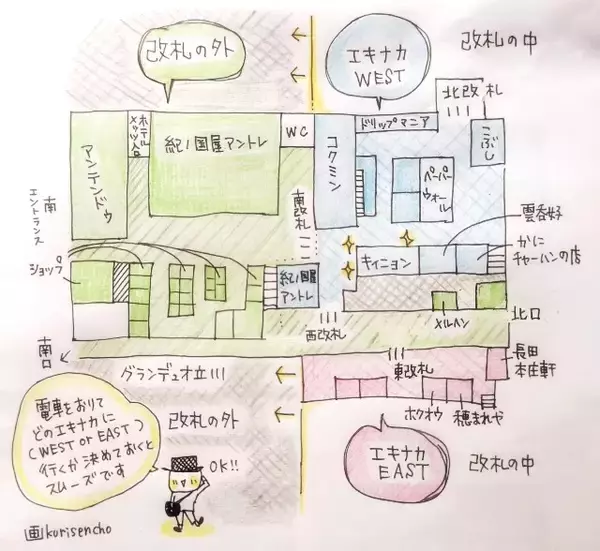 改札の外
エキナカ
WEST
改札の中
北改札
ドリップマニア
こぶし
アンテンドゥ
ホテル
メッツ入口
紀ノ国屋アントレ
WC
コクミン
ペーパー
ウォール
南
エントランス
南改札
雲呑好
かに
チャーハンの店
キィニョン
ショップ
紀ノ国屋
アントレ
メルヘン
北口
西改札
南口
グランデュオ立川
東改札
長田
本庄軒
ホクオウ
穂まれや
電車をおりて
どのエキナカに
(WEST or EAST)
行くか決めておくと
スムーズです
改札の外
OK!!
エキナカ
EAST
改札の中
画kurisencho